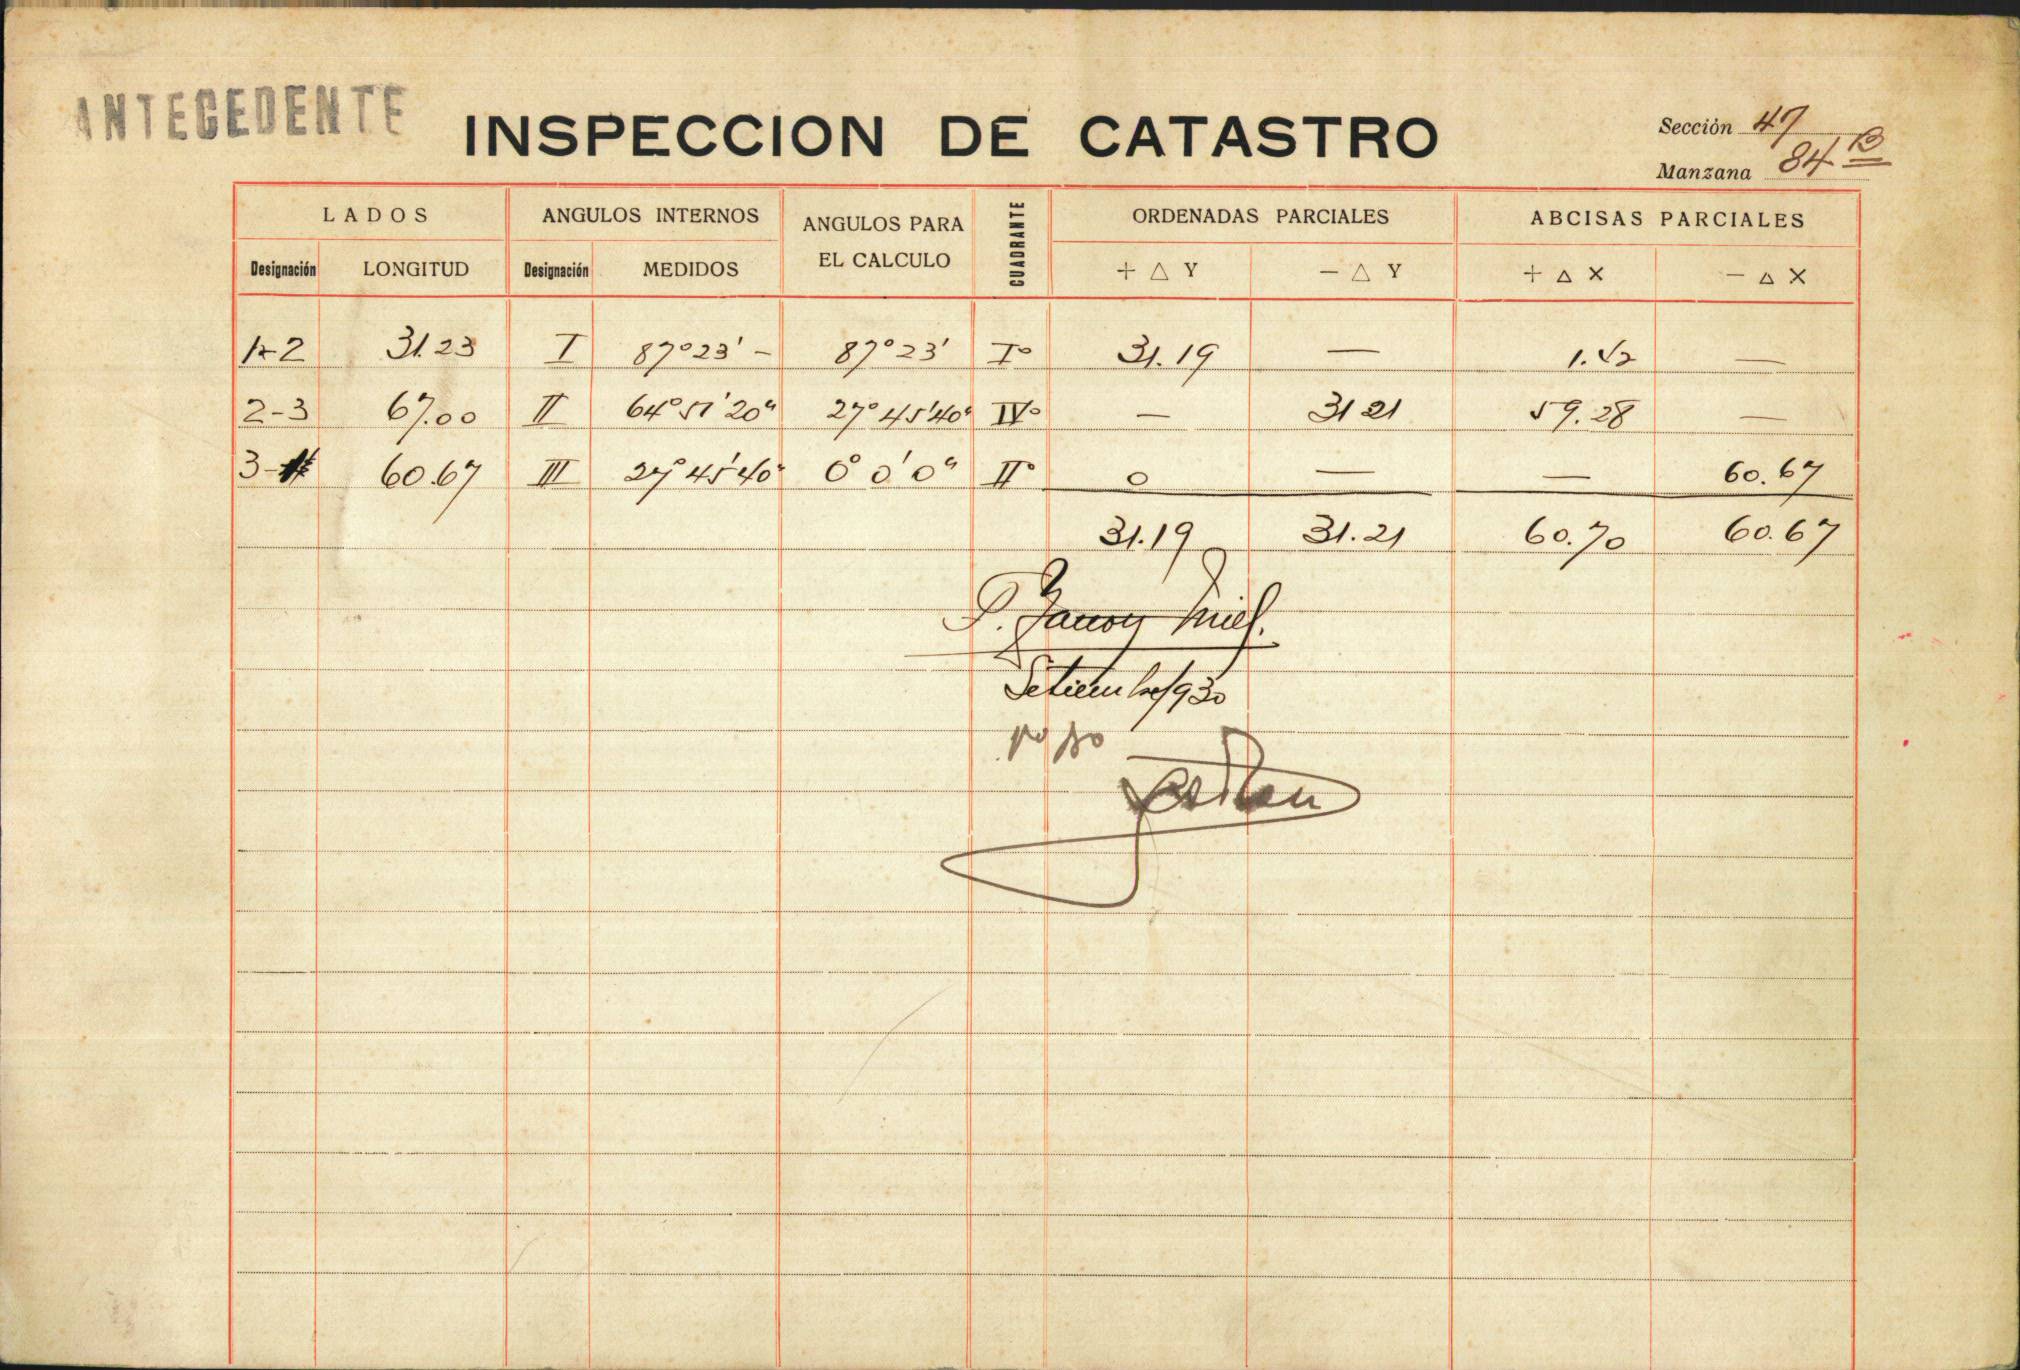 ANTECEDENTE
INSPECCION DE CATASTRO
Sección 47
Manzana 84 B
LADOS ANGULOS INTERNOS ANGULOS PARA EL CALCULO CUADRANTE ORDENADAS PARCIALES ABCISAS PARCIALES
Designación LONGITUD Designación MEDIDOS + △ Y − △ Y + △ X − △ X
1-2 31.23 I 87°23' - 87°23' I° 31.19 — 1.42 —
2-3 67.00 II 64°51'20" 27°45'40" IV° — 31 21 59.28 —
3-1 60.67 III 27°45'40" 0°0'0" II° 0 — — 60.67
31.19 31.21 60.70 60.67
Setiembre/930